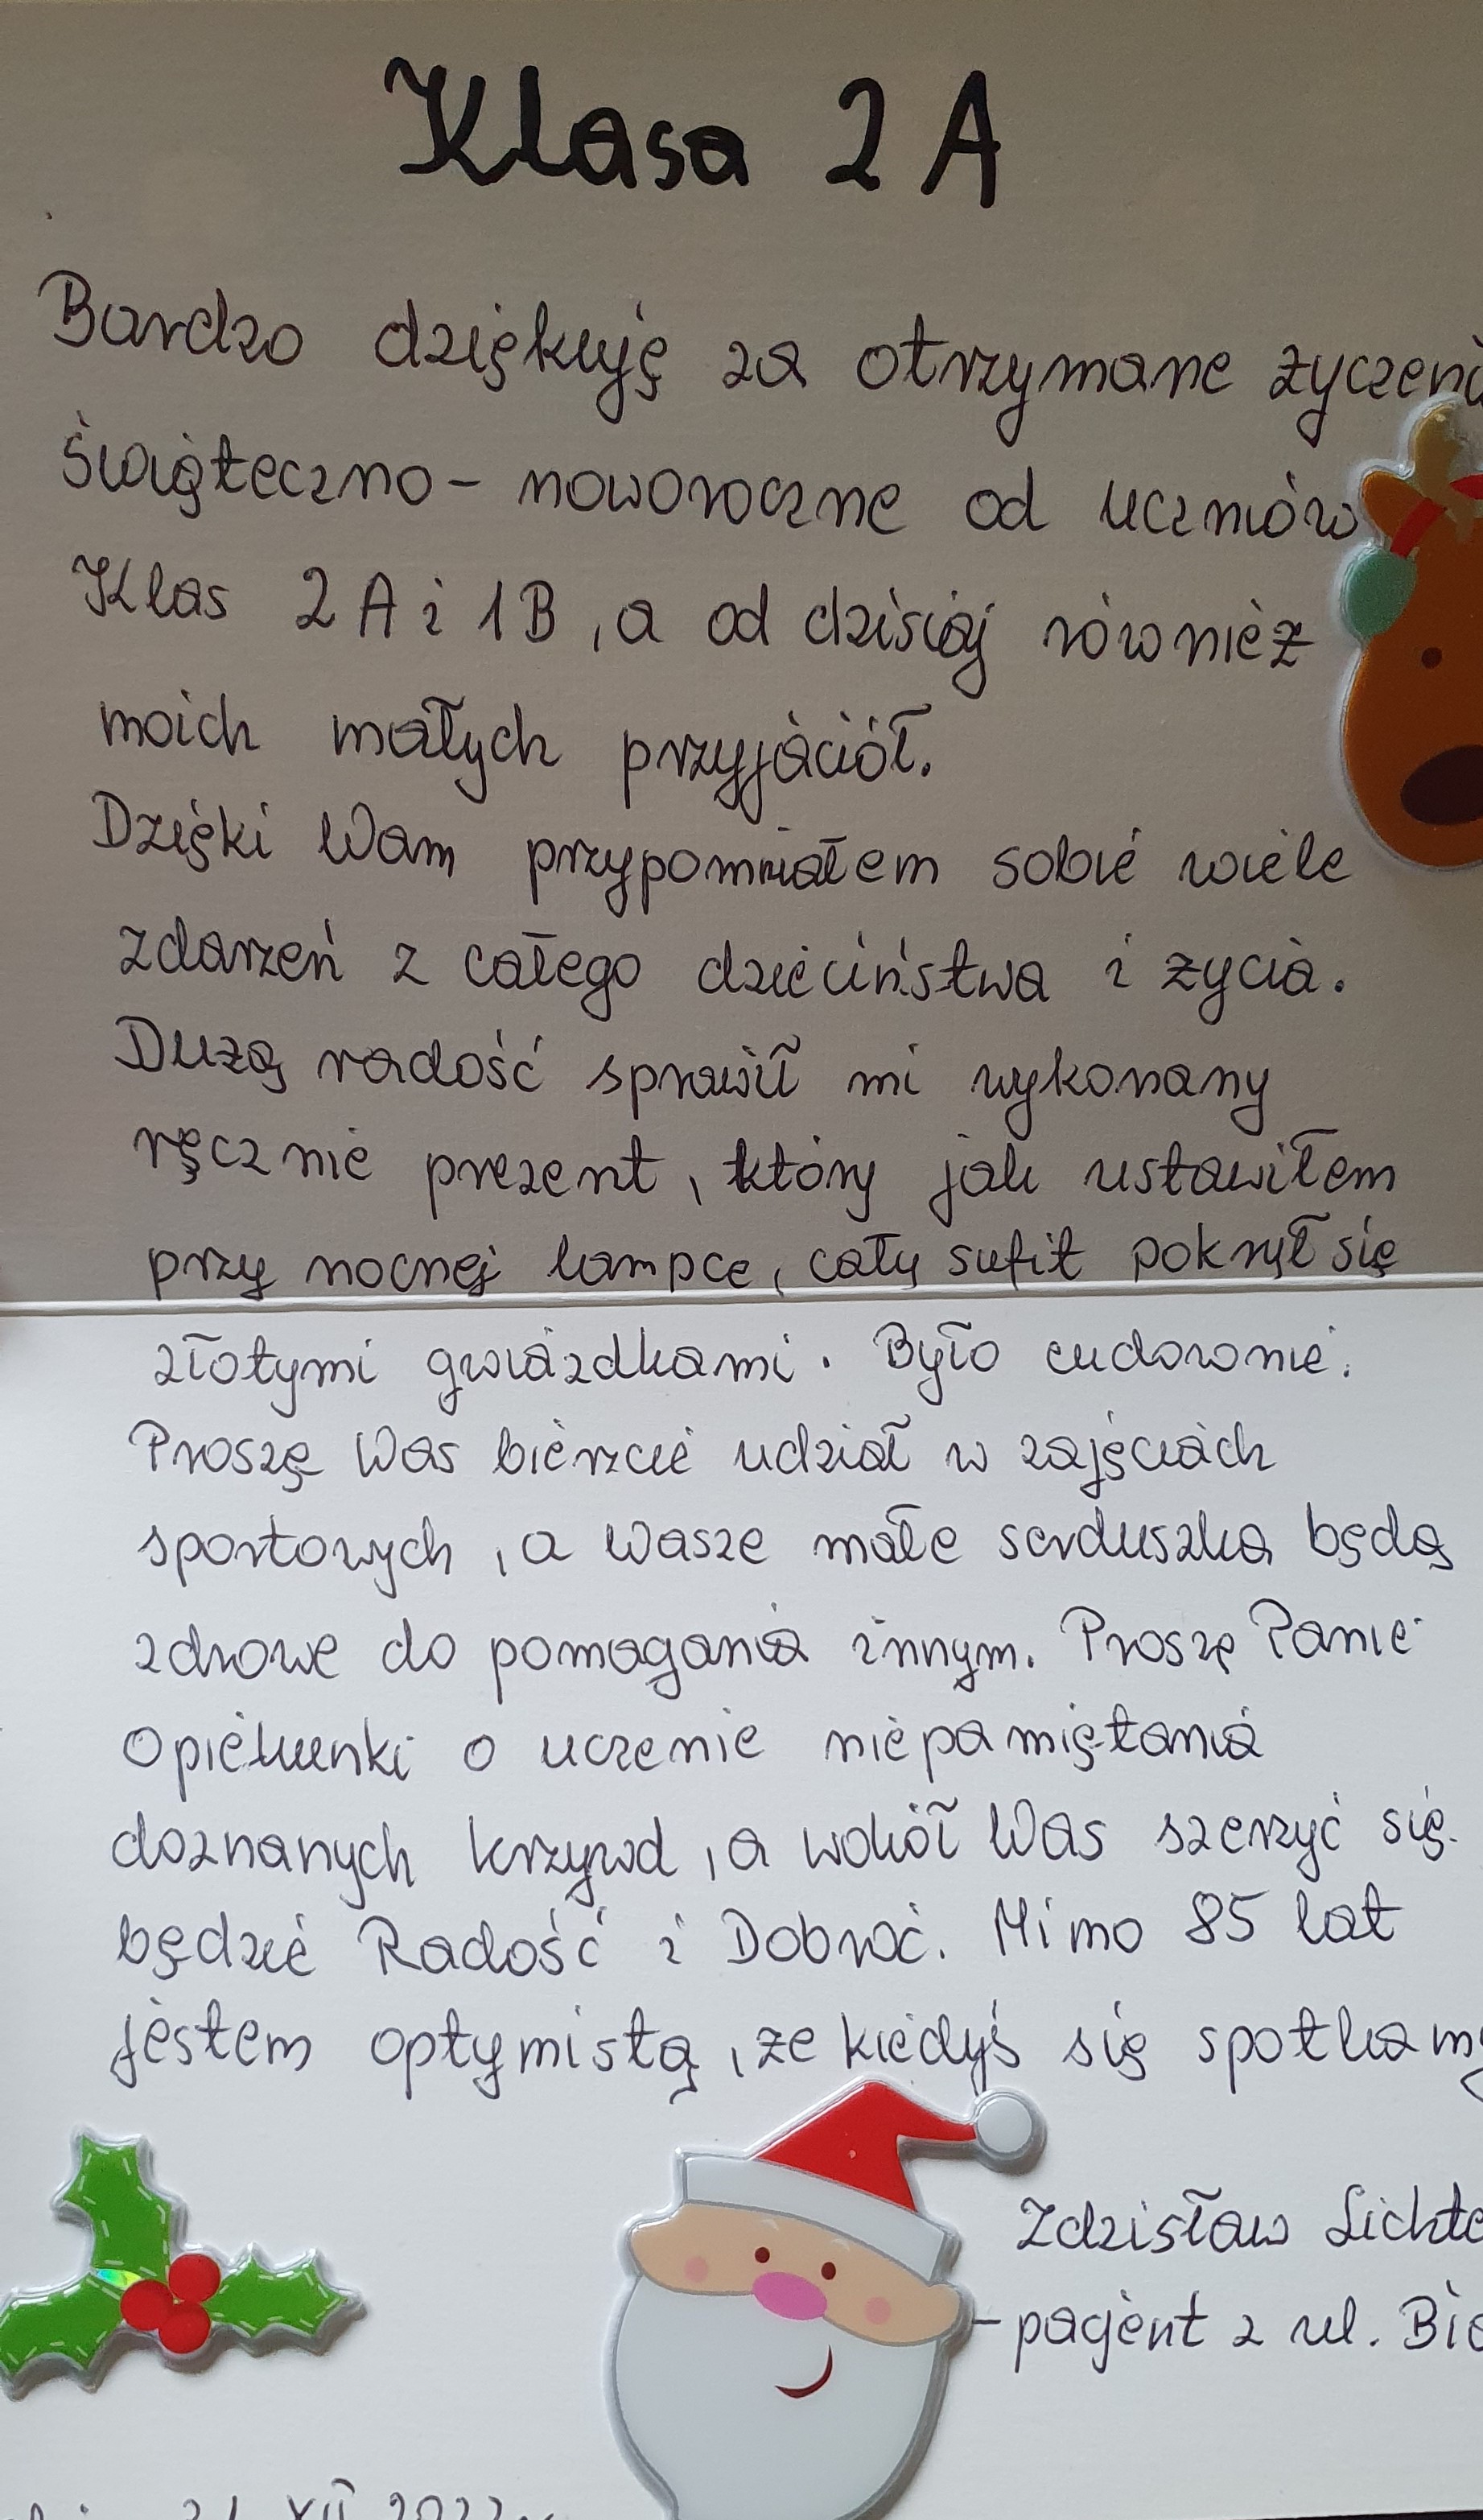 Klasa 2A
Bardzo dziękuję za otrzymane życzenia
świąteczno - noworoczne od uczniów
Klas 2A i 1B, a od dzisiaj również
moich małych przyjaciół.
Dzięki Wam przypomniałem sobie wiele
zdarzeń z całego dzieciństwa i życia.
Dużą radość sprawił mi wykonany
ręcznie prezent, który jak ustawiłem
przy nocnej lampce, cały sufit pokrył się
złotymi gwiazdkami. Było cudownie.
Proszę Was bierzcie udział w zajęciach
sportowych, a Wasze małe serduszka będą
zdrowe do pomagania innym. Proszę Panie
Opiekunki o uczenie niepamiętania
doznanych krzywd, a wokół Was szerzyć się
będzie Radość i Dobroć. Mimo 85 lat
jestem optymistą, że kiedyś się spotkamy
Zdzisław Lichto
- pacjent z ul. Bie
XII